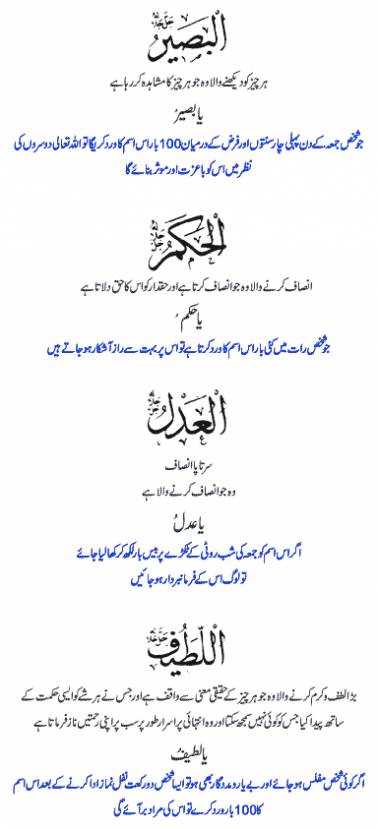 البَصِيرُ جل جلالہ
ہر چیز کو دیکھنے والا وہ جو ہر چیز کا مشاہدہ کر رہا ہے
یا بصیرُ
جو شخص جمعہ کے دن پہلی چار سنتوں اور فرض کے درمیان 100 بار اس اسم کا ورد کریگا تو اللہ تعالی دوسروں کی
نظر میں اس کو با عزت اور موثر بنائے گا
الحَكَمُ جل جلالہ
انصاف کرنے والا وہ جو انصاف کرتا ہے اور حقدار کو اس کا حق دلاتا ہے
یا حکمُ
جو شخص رات میں کئی بار اس اسم کا ورد کرتا ہے تو اس پر بہت سے راز آشکار ہو جاتے ہیں
العَدْلُ جل جلالہ
سرتاپا انصاف
وہ جو انصاف کرنے والا ہے
یا عدلُ
اگر اس اسم کو جمعہ کی شب روٹی کے ٹکڑے پر بیس بار لکھ کر کھا لیا جائے
تو لوگ اس کے فرمانبردار ہو جائیں
اللَّطِيفُ جل جلالہ
بڑا لطف و کرم کرنے والا وہ جو ہر چیز کے حقیقی معنی سے واقف ہے اور جس نے ہر شے کو ایسی حکمت کے
ساتھ پیدا کیا جس کو کوئی نہیں سمجھ سکتا اور وہ انتہائی پر اسرار طور پر سب پر اپنی رحمتیں نازل فرماتا ہے
یا لطیفُ
اگر کوئی شخص مفلس ہو جائے اور بے یار و مددگار بھی ہو تو ایسا شخص دو رکعت نفل نماز ادا کرنے کے بعد اس اسم
کا 100 بار ورد کرے تو اس کی مراد بر آئے گی